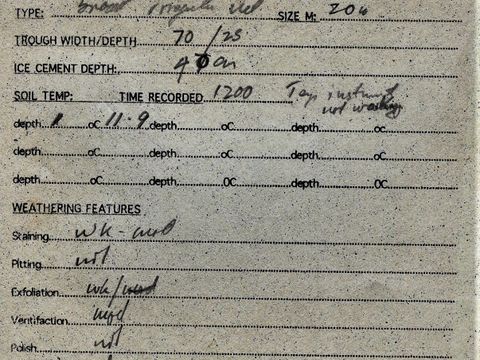 TYPE: Broad irregular SIZE M: 20
TROUGH WIDTH/DEPTH 70/25
ICE CEMENT DEPTH: 40 cm
SOIL TEMP: TIME RECORDED 1200 Temp instrument
not working
depth 1 oC 11.9 depth oC depth oC
depth oC depth oC depth oC
depth oC depth OC depth OC
WEATHERING FEATURES
Staining wk - mod
Pitting not
Exfoliation wk/mod
Ventifaction mod
Polish not